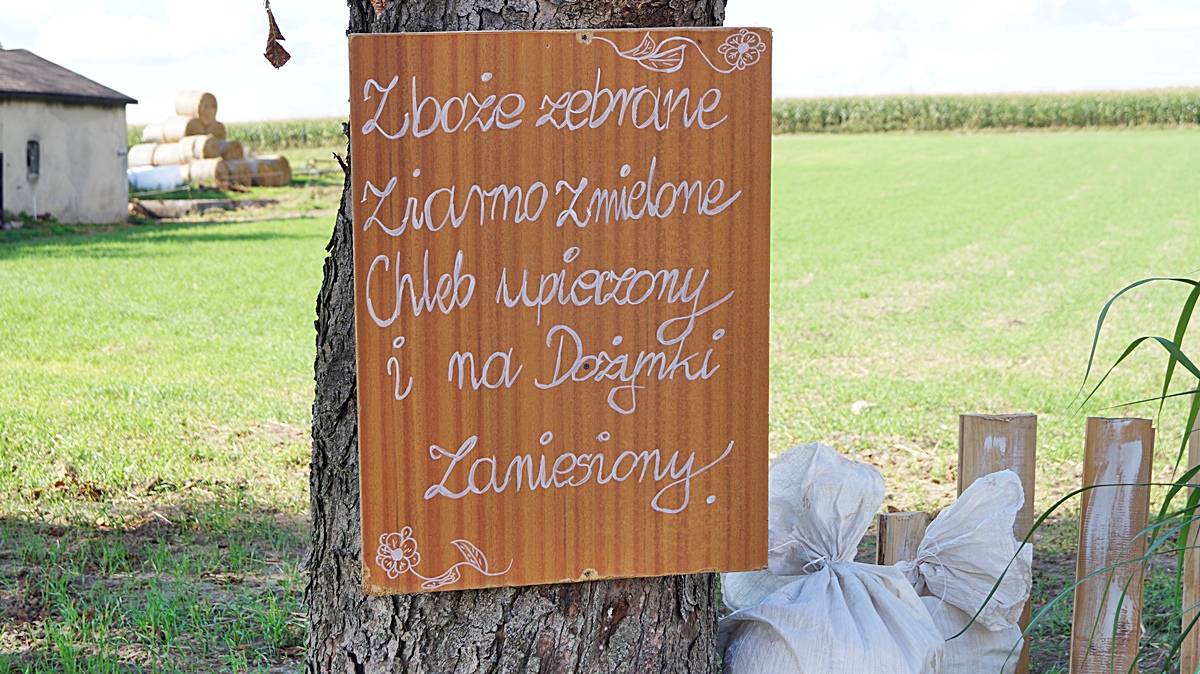 Zboże zebrane
Ziarno zmielone
Chleb upieczony
i na Dożynki
Zaniesiony.